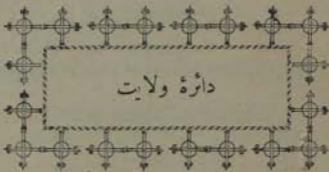 دائرۀ ولایت